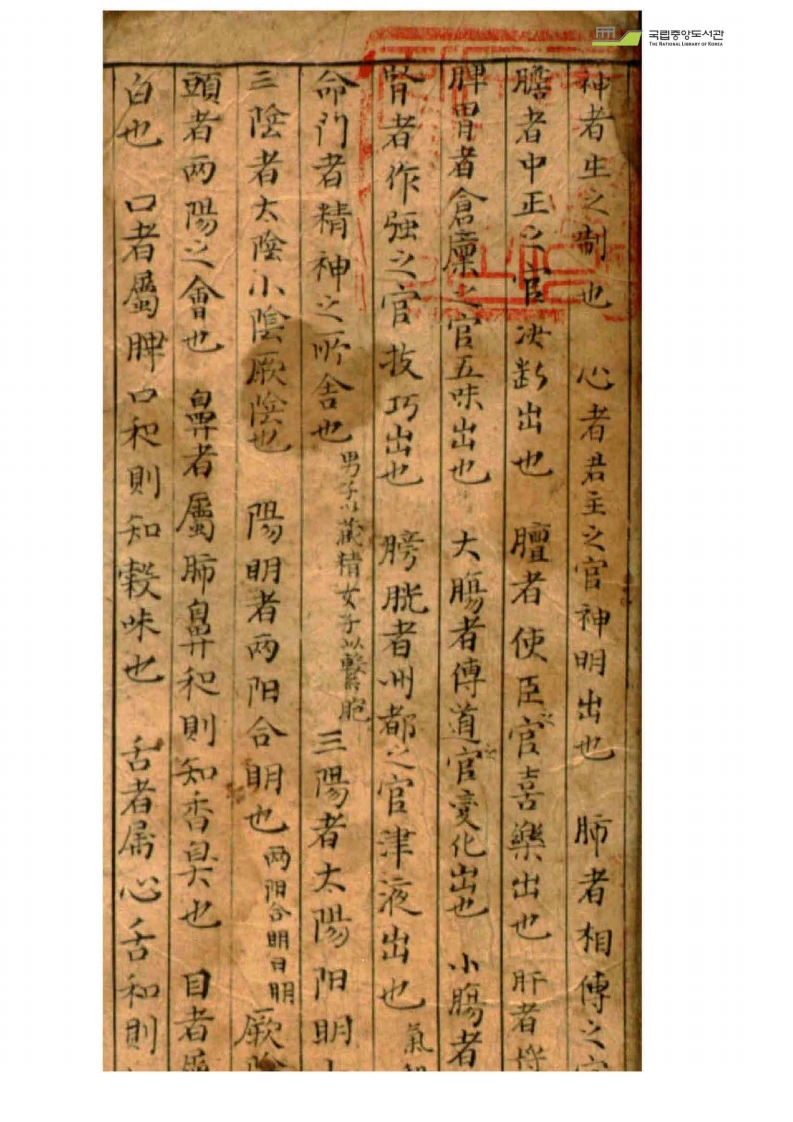 국립중앙도서관
THE NATIONAL LIBRARY OF KOREA
神者生之制也 心者君主之官神明出也 肺者相傳之官
膽者中正之官决断出也 膻者使臣官喜樂出也 肝者將
脾胃者倉廩之官五味出也 大膓者傳道官变化出也 小膓者
腎者作强之官技巧出也 膀胱者州都之官津液出也 氣
命门者精神之所舍也 男子以藏精女子以繫胞 三陽者太陽阳明
三陰者太陰小陰厥陰也 陽明者两阳合明也 两阳合明曰明 厥陰
頭者两陽之會也 鼻者屬肺鼻和則知香臭也 目者
白也 口者屬脾口和則知穀味也 舌者属心舌和則